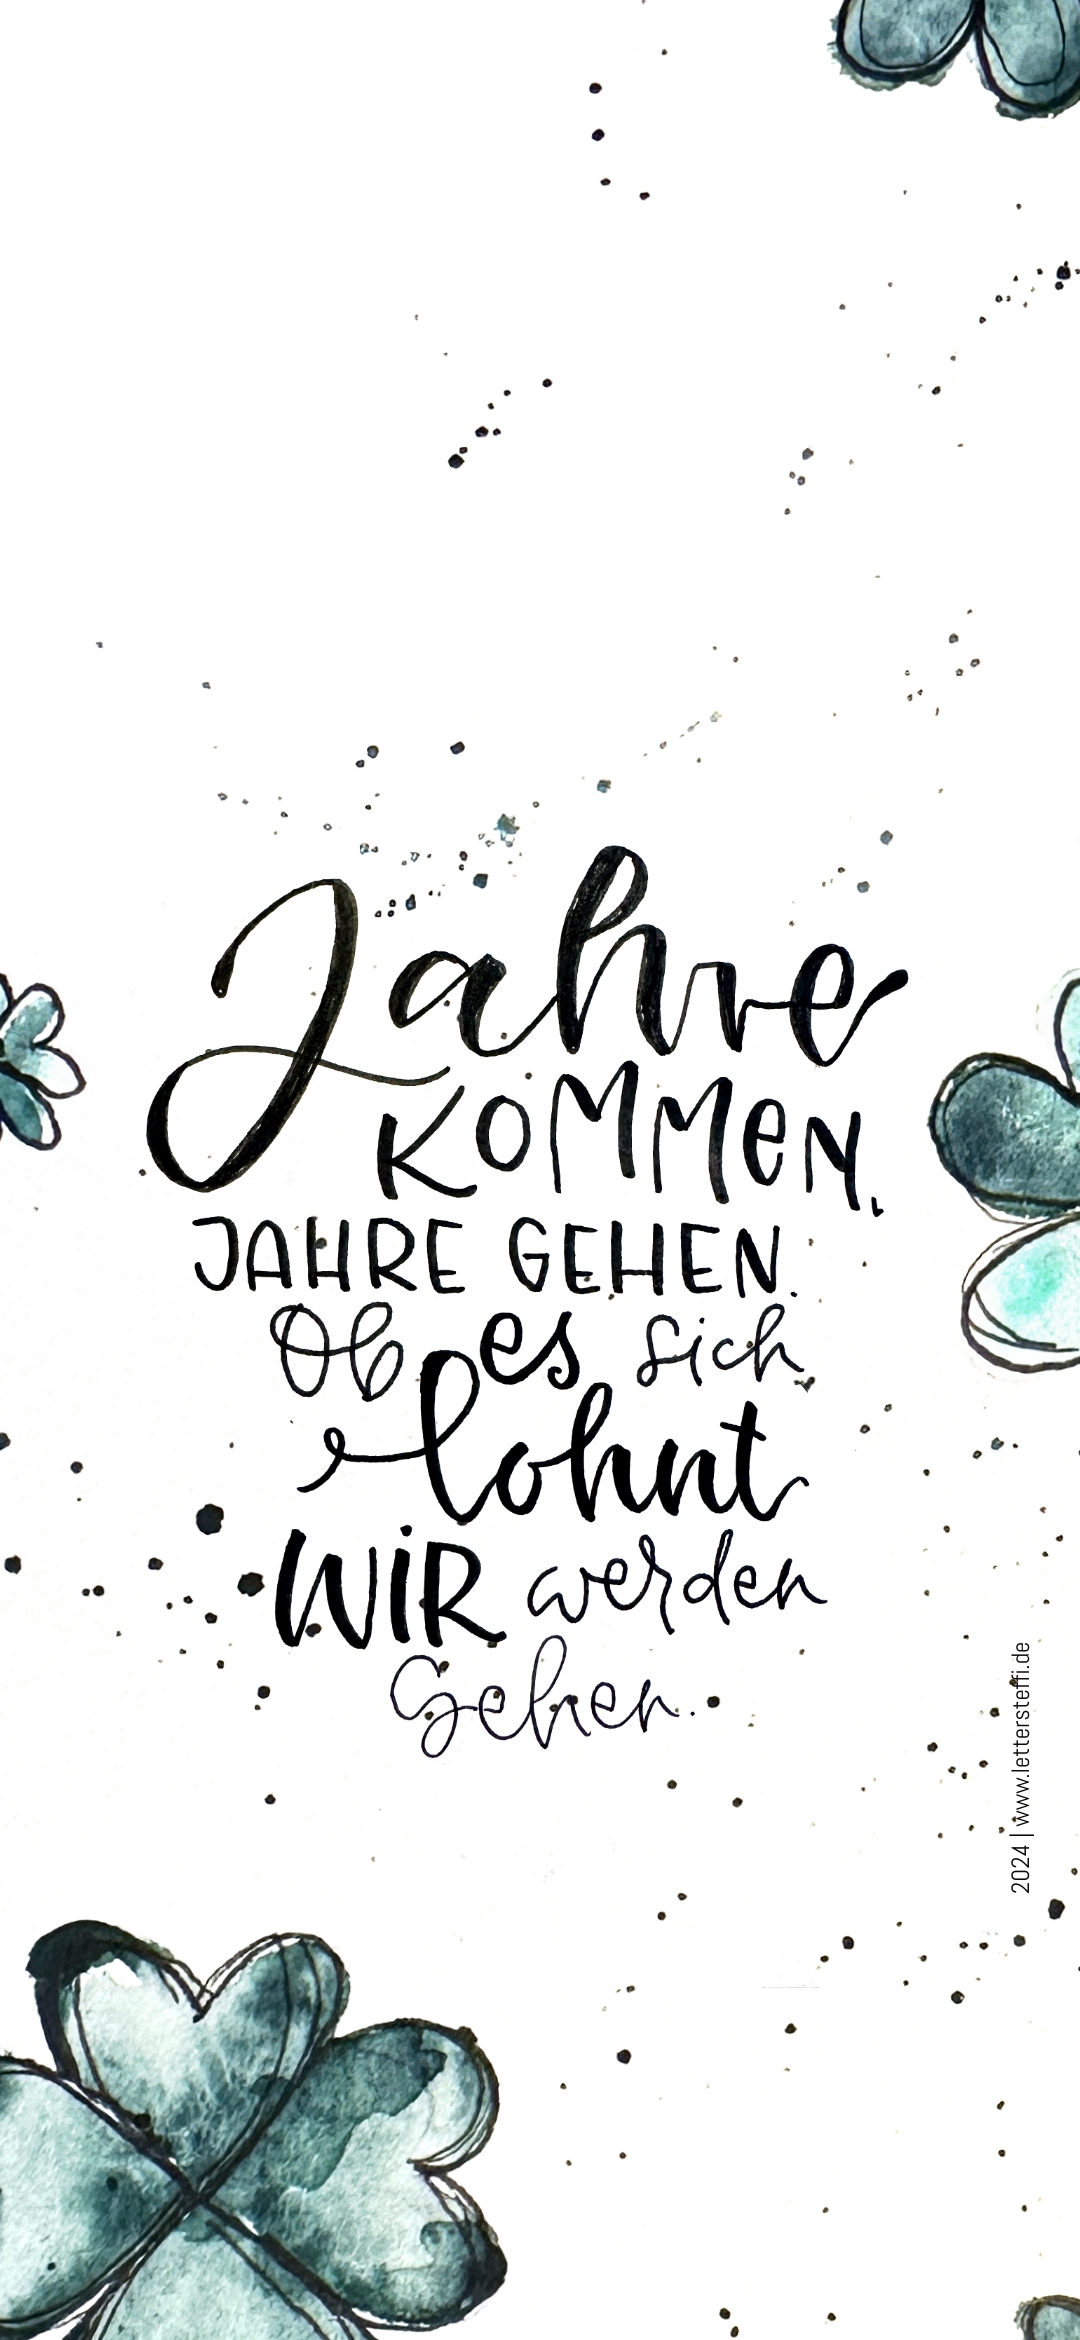 Jahre
KOMMEN,
JAHRE GEHEN.
Ob es sich
lohnt
WiR werden
Sehen.
2024 | www.lettersteffi.de